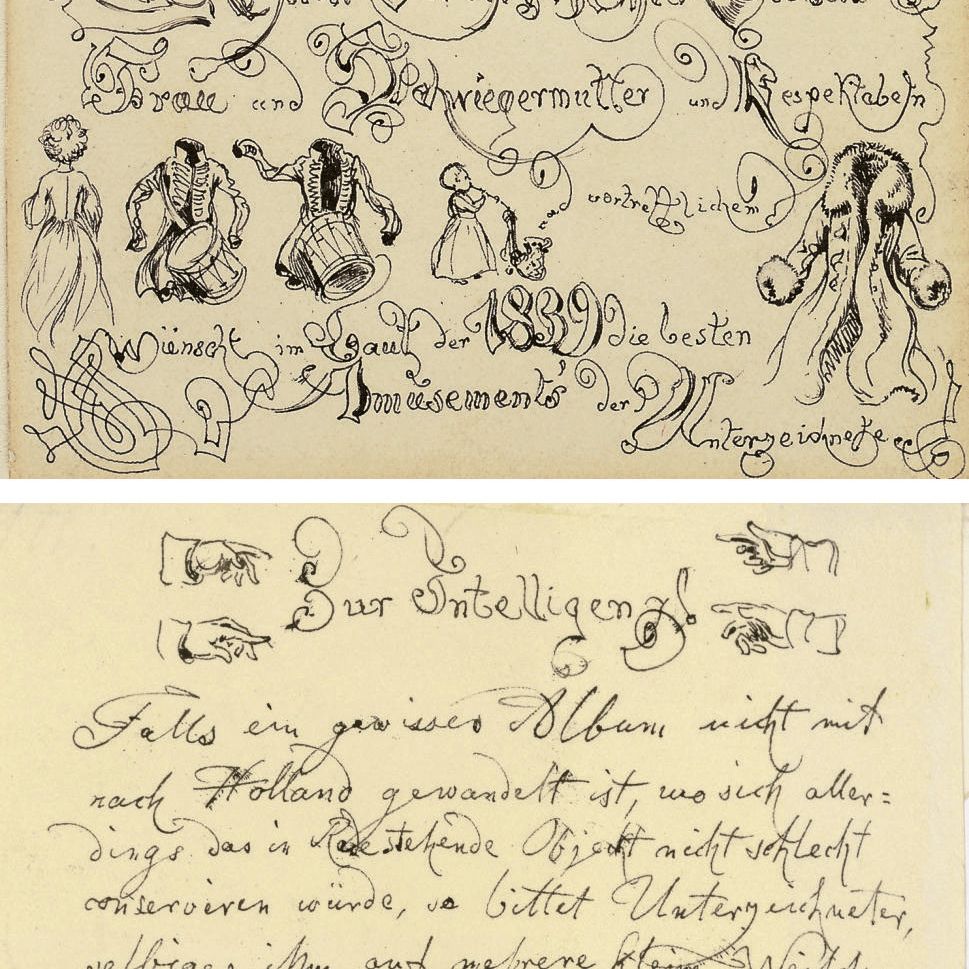 Frau und Schwiegermutter und Respektabeln
vortrefflichem
Wünscht im Lauf der 1839 die besten
Amusement's der Unterzeichnete
Zur Intelligenz!
Falls ein gewisses Album nicht mit
nach Holland gewandelt ist, wo sich aller=
dings das in Rede stehende Objeckt nicht schlecht
conserviren würde, so bittet Unterzeichneter,
selbiges ihm auf mehrere